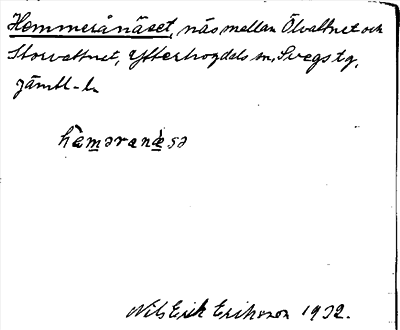 Hommeränäset, näs mellan Ölvattnet och
Storvattnet, Ytterhogdals sn, Svegs tg,
Jämtl-ln
hæ̀məranæ̀sə
Nils Erik Eriksson 1932.